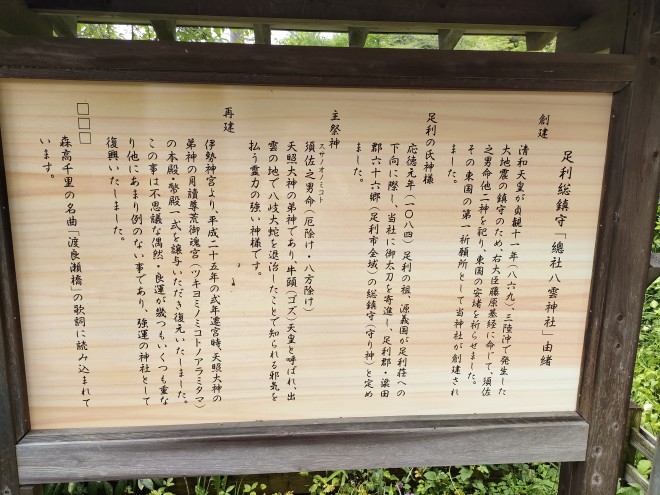 足利総鎮守「總社八雲神社」由緒
創建
清和天皇が貞観十一年(八六九)三陸沖で発生した
大地震の鎮守のため、右大臣藤原基経に命じて、須佐
之男命他二神を祀り、東国の安堵を祈らせました。
その東国の第一祈願所として当神社が創建され
ました。
足利の氏神様
応徳元年(一〇八四)足利の祖、源義国が足利荘への
下向に際し、当社に御太刀を寄進し、足利郡・梁田
郡六十六郷(足利市全域)の総鎮守(守り神)と定め
ました。
主祭神
スサノオノミコト
須佐之男命(厄除け・八方除け)
天照大神の弟神であり、牛頭(ゴズ)天皇と呼ばれ、出
雲の地で八岐大蛇を退治したことで知られる邪気を
払う霊力の強い神様です。
再建
伊勢神宮より、平成二十五年の式年遷宮時、天照大神の
弟神の月讀尊荒御魂宮(ツキヨミノミコトノアラミタマ)
の本殿・幣殿一式を譲与いただき復元いたしました。
この事は不思議な偶然・良運が幾つもいくつも重な
り他にあまり例のない事であり、強運の神社として
復興いたしました。
□□□
森高千里の名曲「渡良瀬橋」の歌詞に読み込まれて
います。